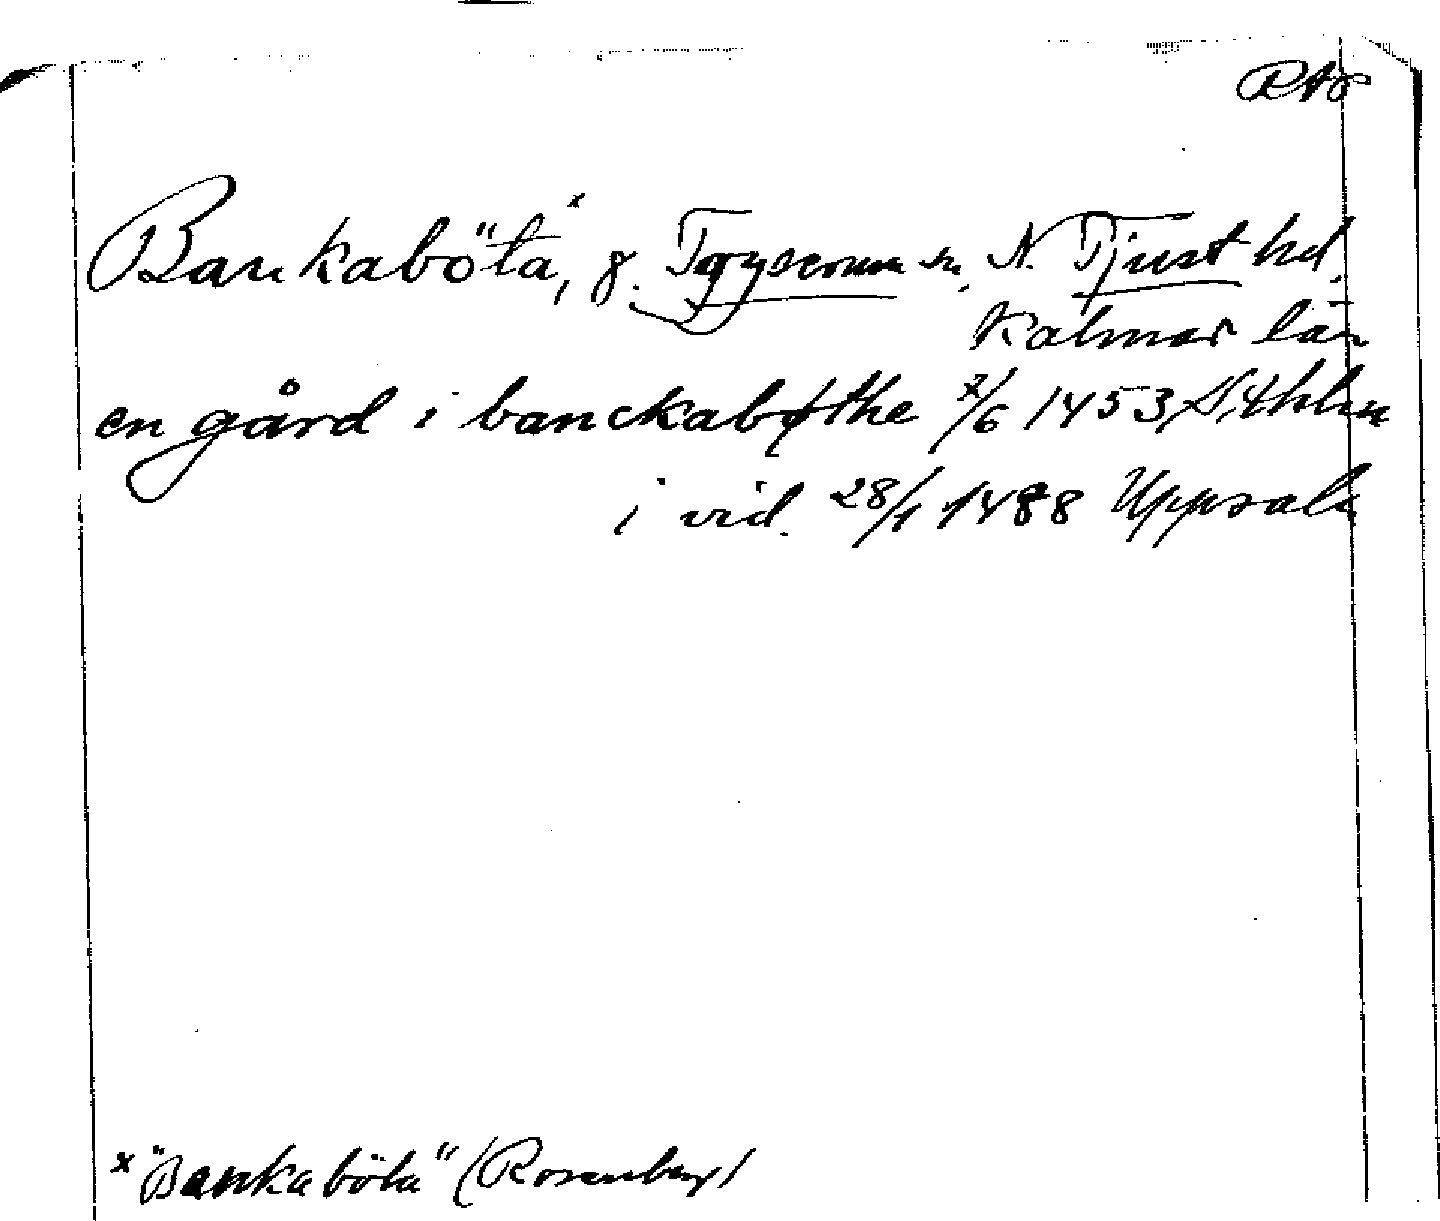 RAp
Bankaböta,ˣ g. Tryserum sn, N. Tjust hd,
Kalmar län
en gård i banckabøthe 7/6 1453 Sthlm
i vid. 28/1 1488 Uppsala
x "Bankaböta" (Rosenberg)